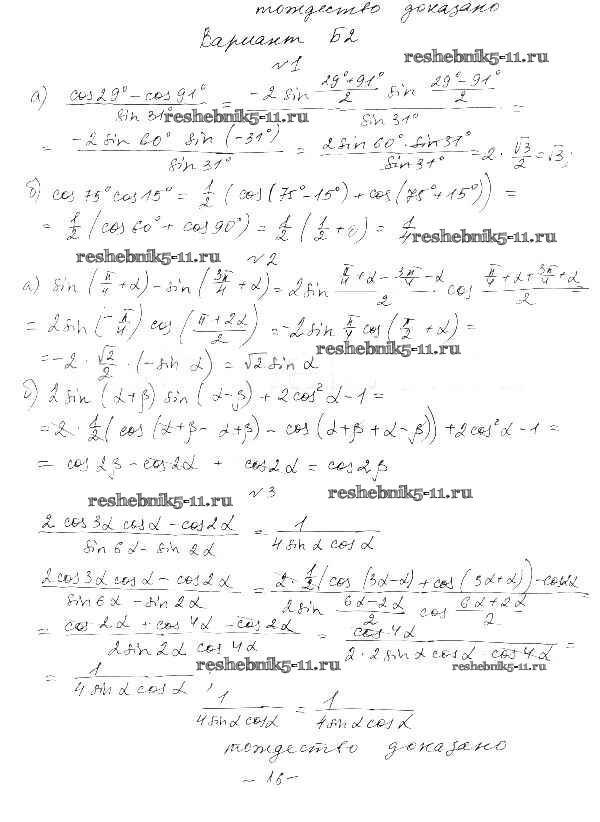 тождество доказано
Вариант Б2
reshebnik5-11.ru
№1
а) (cos29° − cos91°)/(sin31°) = (−2 sin (29°+91°)/2 sin (29°−91°)/2)/(sin31°) =
reshebnik5-11.ru
= (−2 sin 60° sin(−31°))/(sin31°) = (2 sin 60° · sin31°)/(sin31°) = 2 · √3/2 = √3;
б) cos 75° cos 15° = 1/2 (cos(75°−15°) + cos(75°+15°)) =
= 1/2 (cos 60° + cos 90°) = 1/2 (1/2 + 0) = 1/4
reshebnik5-11.ru
reshebnik5-11.ru
№2
а) sin(π/4 + α) − sin(3π/4 + α) = 2 sin (π/4 + α − 3π/4 − α)/2 · cos (π/4 + α + 3π/4 + α)/2 =
= 2 sin(−π/4) cos((π + 2α)/2) = −2 sin π/4 cos(π/2 + α) =
reshebnik5-11.ru
= −2 · √2/2 · (−sin α) = √2 sin α
б) 2 sin(α+β) sin(α−β) + 2cos²α − 1 =
= 2 · 1/2 (cos(α+β − α+β) − cos(α+β + α−β)) + 2cos²α − 1 =
= cos 2β − cos2α + cos2α = cos2β
reshebnik5-11.ru
№3
reshebnik5-11.ru
(2 cos3α cosα − cos2α)/(sin6α − sin 2α) = 1/(4 sin α cos α)
(2cos3α cosα − cos2α)/(sin6α − sin2α) = (2 · 1/2 (cos(3α−α) + cos(3α+α)) − cos2α)/(2 sin (6α−2α)/2 cos (6α+2α)/2) =
= (cos 2α + cos 4α − cos 2α)/(2 sin 2α cos 4α) = (cos 4α)/(2 · 2 sin α cos α cos 4α) =
reshebnik5-11.ru
reshebnik5-11.ru
= 1/(4 sin α cos α);
1/(4 sin α cosα) = 1/(4 sin α cos α)
тождество доказано
− 16 −